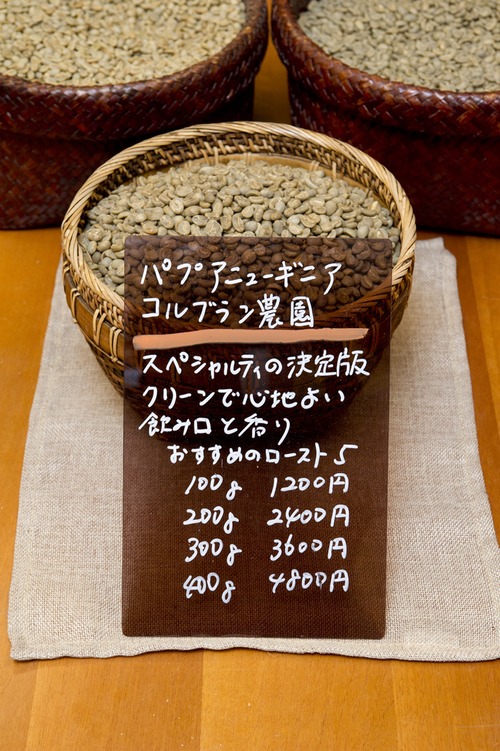 パプアニューギニア
コルブラン農園
スペシャルティの決定版
クリーンで心地よい
飲み口と香り
おすすめのロースト 5
100g 1200円
200g 2400円
300g 3600円
400g 4800円